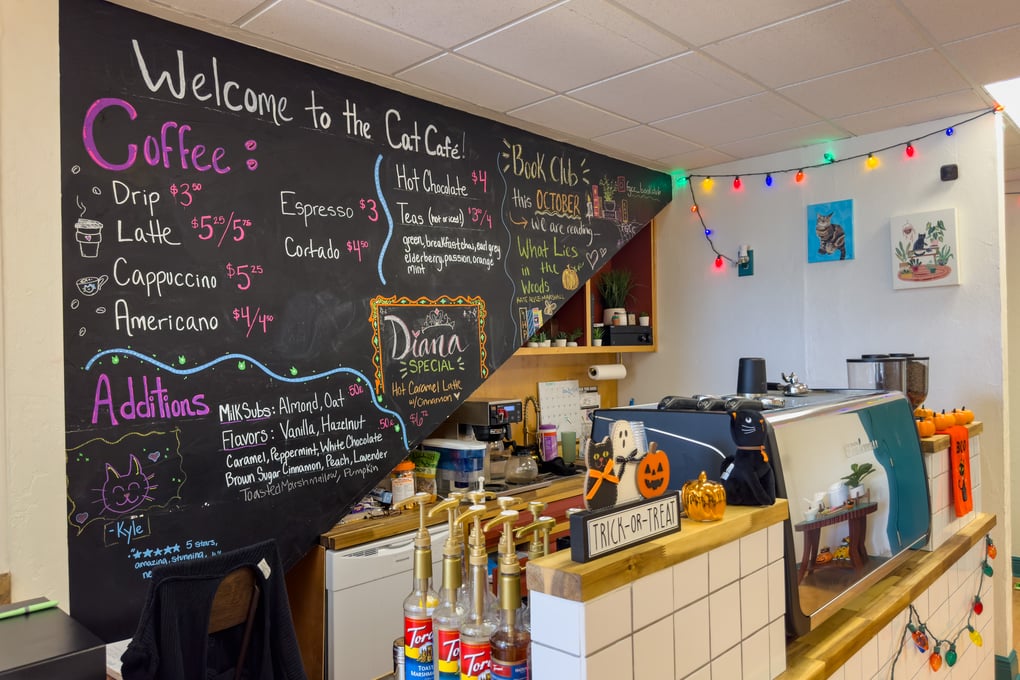 Welcome to the Cat Café!
Coffee:
Drip $3⁵⁰
Latte $5²⁵/5⁷⁵
Cappuccino $5²⁵
Americano $4/4⁵⁰
Espresso $3
Cortado $4⁵⁰
Hot Chocolate $4
Teas (hot or iced!)
green, breakfast chai, earl grey
elderberry, passion, orange
mint
Book Club
this OCTOBER
→ we are reading...
What Lies
in the
Woods
Diana
SPECIAL
Hot Caramel Latte
w/ Cinnamon
Additions
Milk Subs: Almond, Oat 50¢
Flavors: Vanilla, Hazelnut 50¢
Caramel, Peppermint, White Chocolate
Brown Sugar Cinnamon, Peach, Lavender
Toasted Marshmallow, Pumpkin
-Kyle
"★★★★★ 5 stars,
amazing, stunning,
TRICK-OR-TREAT
BOO
Tora
TOASTED
MARSHM